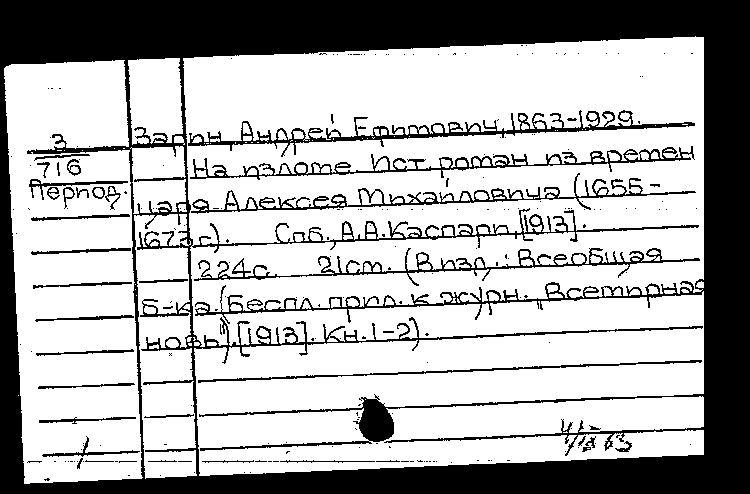 Зарин, Андрей Ефимович, 1863-1929.
3
716
Период.
На изломе. Ист. роман из времен
царя Алексея Михайловича (1655-
1673 г). Спб., А.А. Каспари, [1913].
224с. 21см. (В изд.: Всеобщая
б-ка. (Беспл. прил. к журн. "Всемирная
новь"). [1913]. Кн. 1-2).